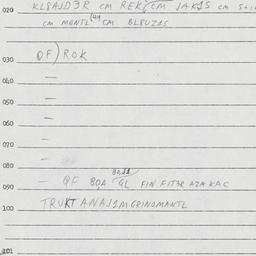 020 KL8AJD3R CM REK/CM JAK1S CM
CM MENTL(44) CM BL8UZ1S
QF)ROK
030
040 —
050 —
060 —
070 -
080 -
090 - QF 80A GL FIN FIT3R AZA KAC
100 TRUKT ANAJ1M GRINOMANTL
101